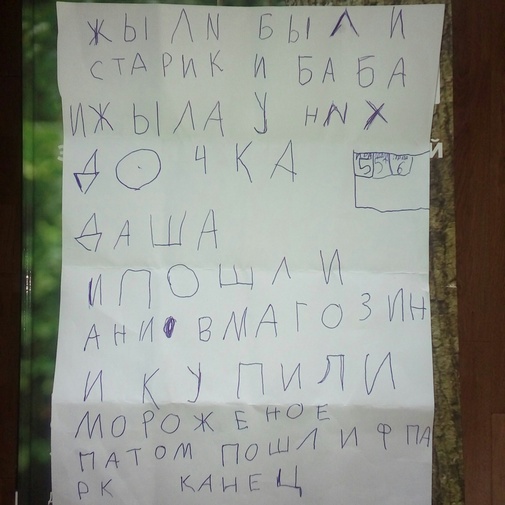 ЖЫЛИ БЫЛИ
СТАРИК И БАБА
ИЖЫЛА У НИХ
ДОЧКА
ДАША
И ПОШЛИ
АНИ ВМАГОЗИН
И КУПИЛИ
МОРОЖЕНОЕ
ПАТОМ ПОШЛИ ФПА
РК КАНЕЦ